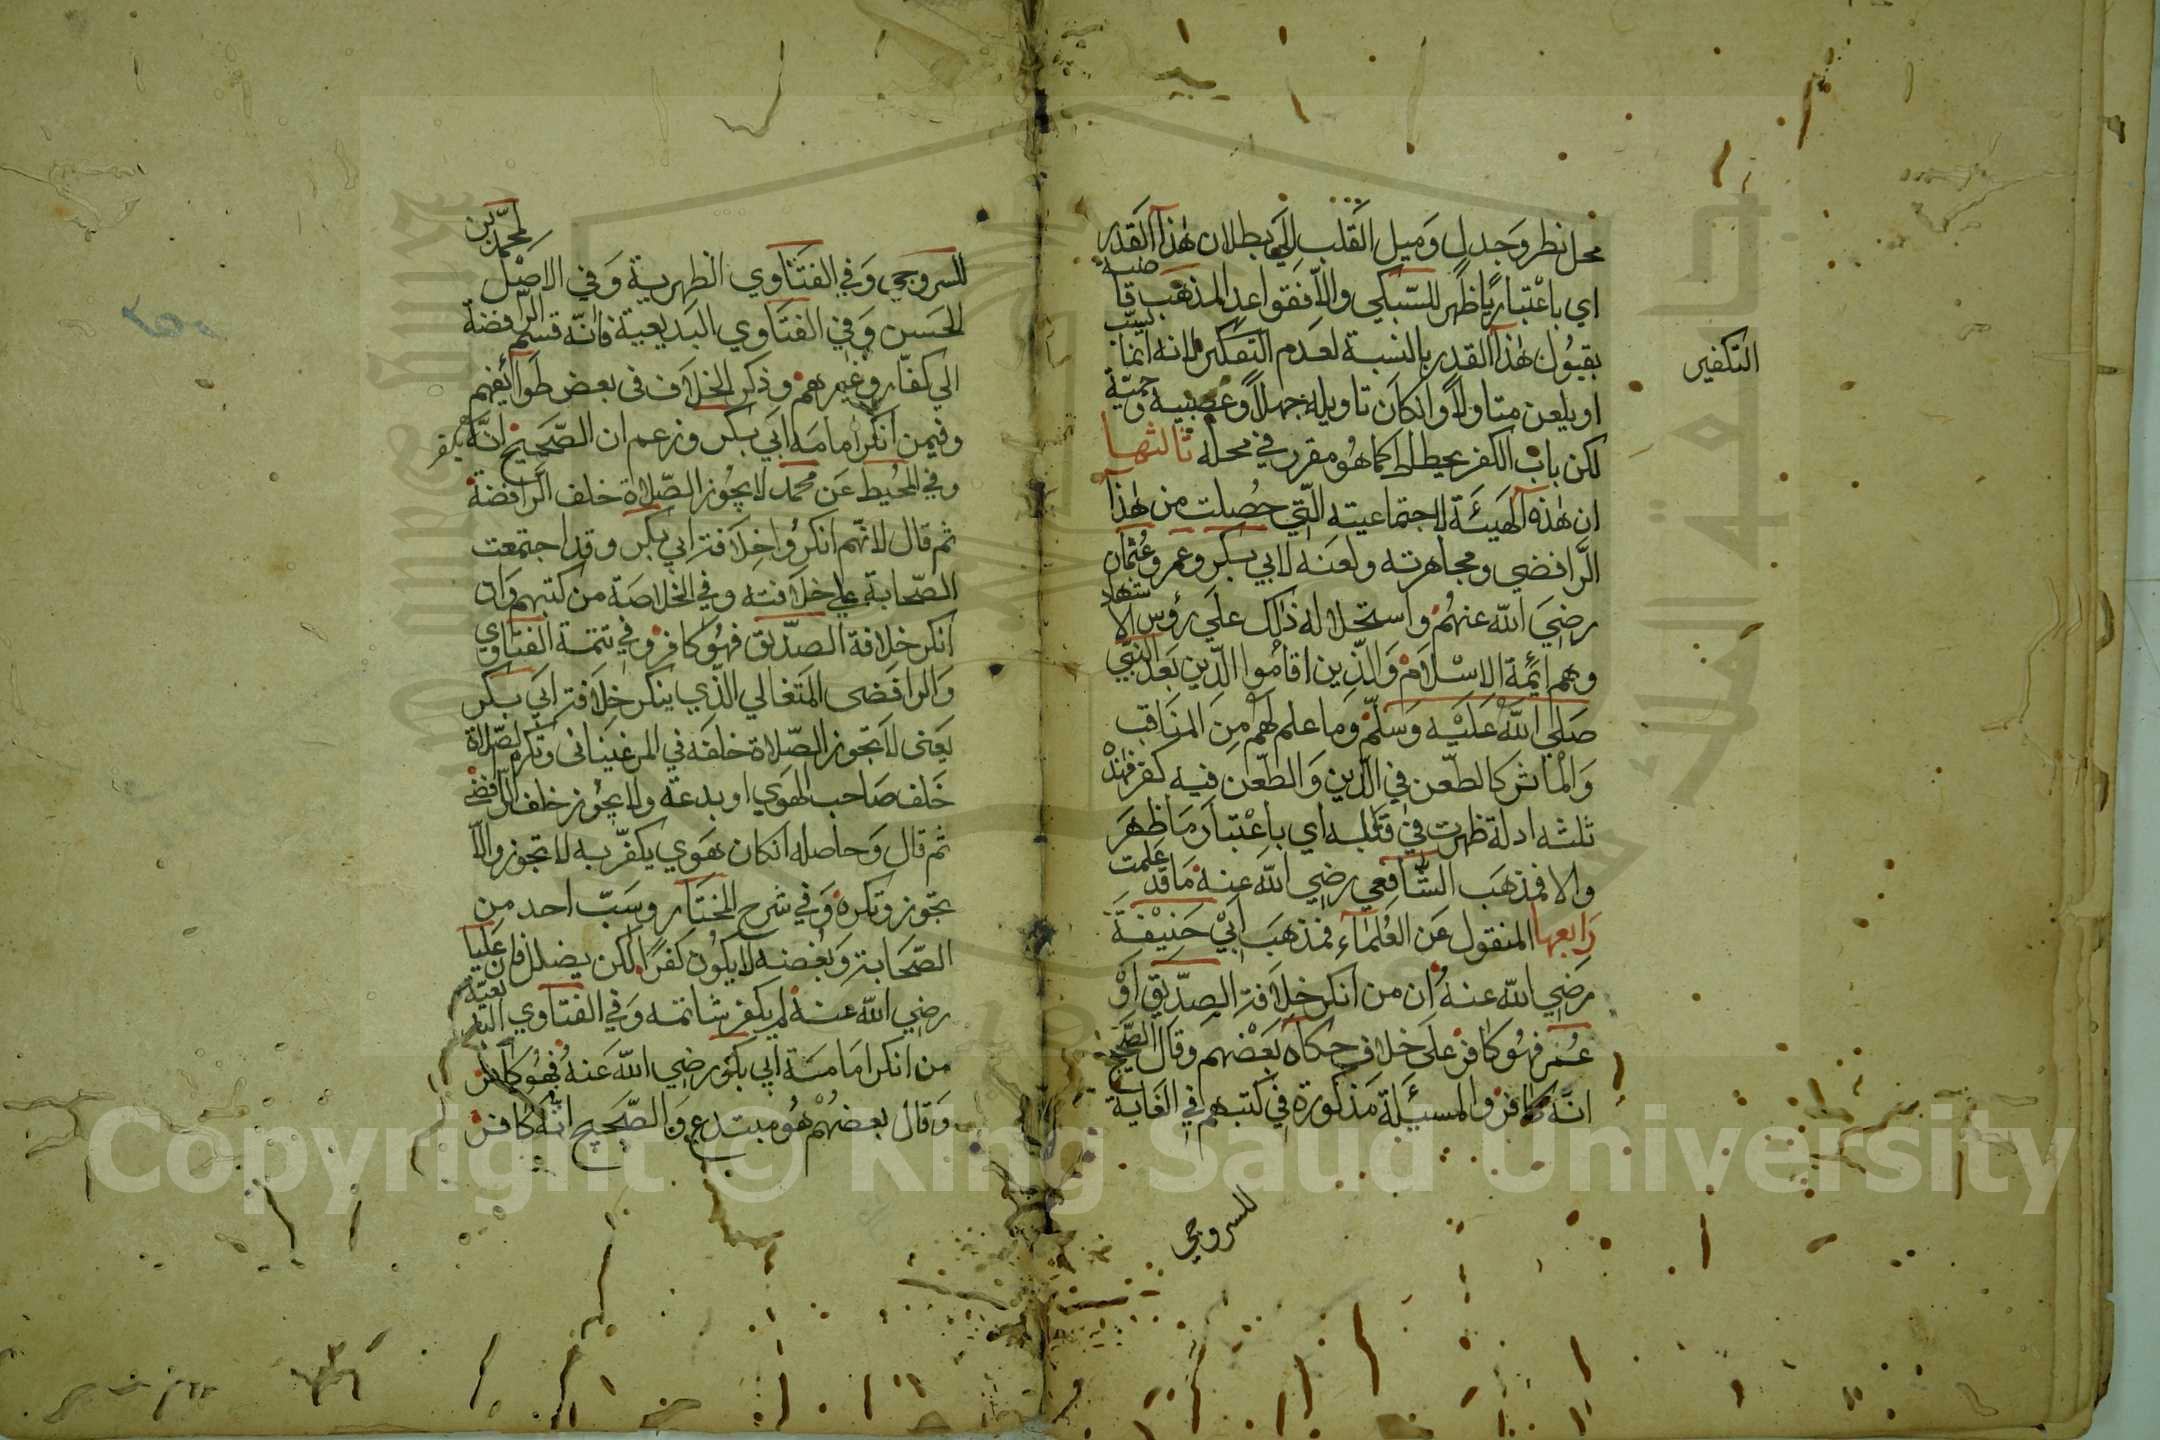 محل نظر وجدل وميل القلب الي بطلان هذا القدر
اي باعتبار ما ظهر للسبكي والا فقواعد المذهب قاضية
بقبول هذا القدر بالنسبة لعدم التكفير لانه انما يسب
او يلعن متاولا وان كان تاويله جهلا وعصبية وحمية
لكن باب الكفر يحطاط كما هو مقرر في محله ثالثها
ان هذه الهيئة الاجتماعيته التي حصلت من هذا
الرافضي ومجاهرته ولعنه لابي بكر وعمر وعثمان
رضي الله عنهم واستحلاله ذلك علي رؤس الاشهاد
وهم ائمة الاسلام والذين اقاموا الدين بعد النبي
صلي الله عليه وسلم وما علم لهم من المناقب
والماثر كالطعن في الدين والطعن فيه كفر فهذه
ثلثه ادلة ظهرت في قلبه اي باعتبار ما ظهر
والا فمذهب الشافعي رضي الله عنه ما قد علمت
رابعها المنقول عن العلماء فمذهب ابي حنيفة
رضي الله عنه ان من انكر خلافة الصديق او
عمر فهو كافر على خلاف حكاه بعضهم وقال الصحيح
انه كافر والمسئلة مذكورة في كتبهم في الغاية
للسروجي
التكفير
للسروجي وفي الفتاوي الظهرية وفي الاصل لمحمد بن
الحسن وفي الفتاوي البديعية فانه قسم الرافضة
الي كفار وغيرهم وذكر الخلاف في بعض طوائفهم
وفيمن انكر امامه ابي بكر وزعم ان الصحيح انه يكفر
وفي المحيط عن محمد لا يجوز الصلاة خلف الرافضة
ثم قال لانهم انكروا خلافة ابي بكر وقد اجتمعت
الصحابة علي خلافته وفي الخلاصة من كتبهم وان
انكر خلافة الصديق فهو كافر وفي تتمة الفتاوي
والرافضى المتغالي الذي ينكر خلافة ابي بكر
يعنى لا تجوز الصلاة خلفه في المرغينانى وتكره الصلاة
خلف صاحب الهوي او بدعة ولا يجوز خلف الرافضي
ثم قال وحاصله ان كان هوي يكفر به لا تجوز والا
تجوز وتكره وفي شرح المختار وسب احد من
الصحابة وبغضه لا يكون كفرا لكن يضلل فان عليا
رضي الله عنه لم يكفر شاتمه وفي الفتاوي البديعية
من انكر امامة ابي بكر رضي الله عنه فهو كافر
وقال بعضهم هو مبتدع والصحيح انه كافر
Copyright © King Saud University